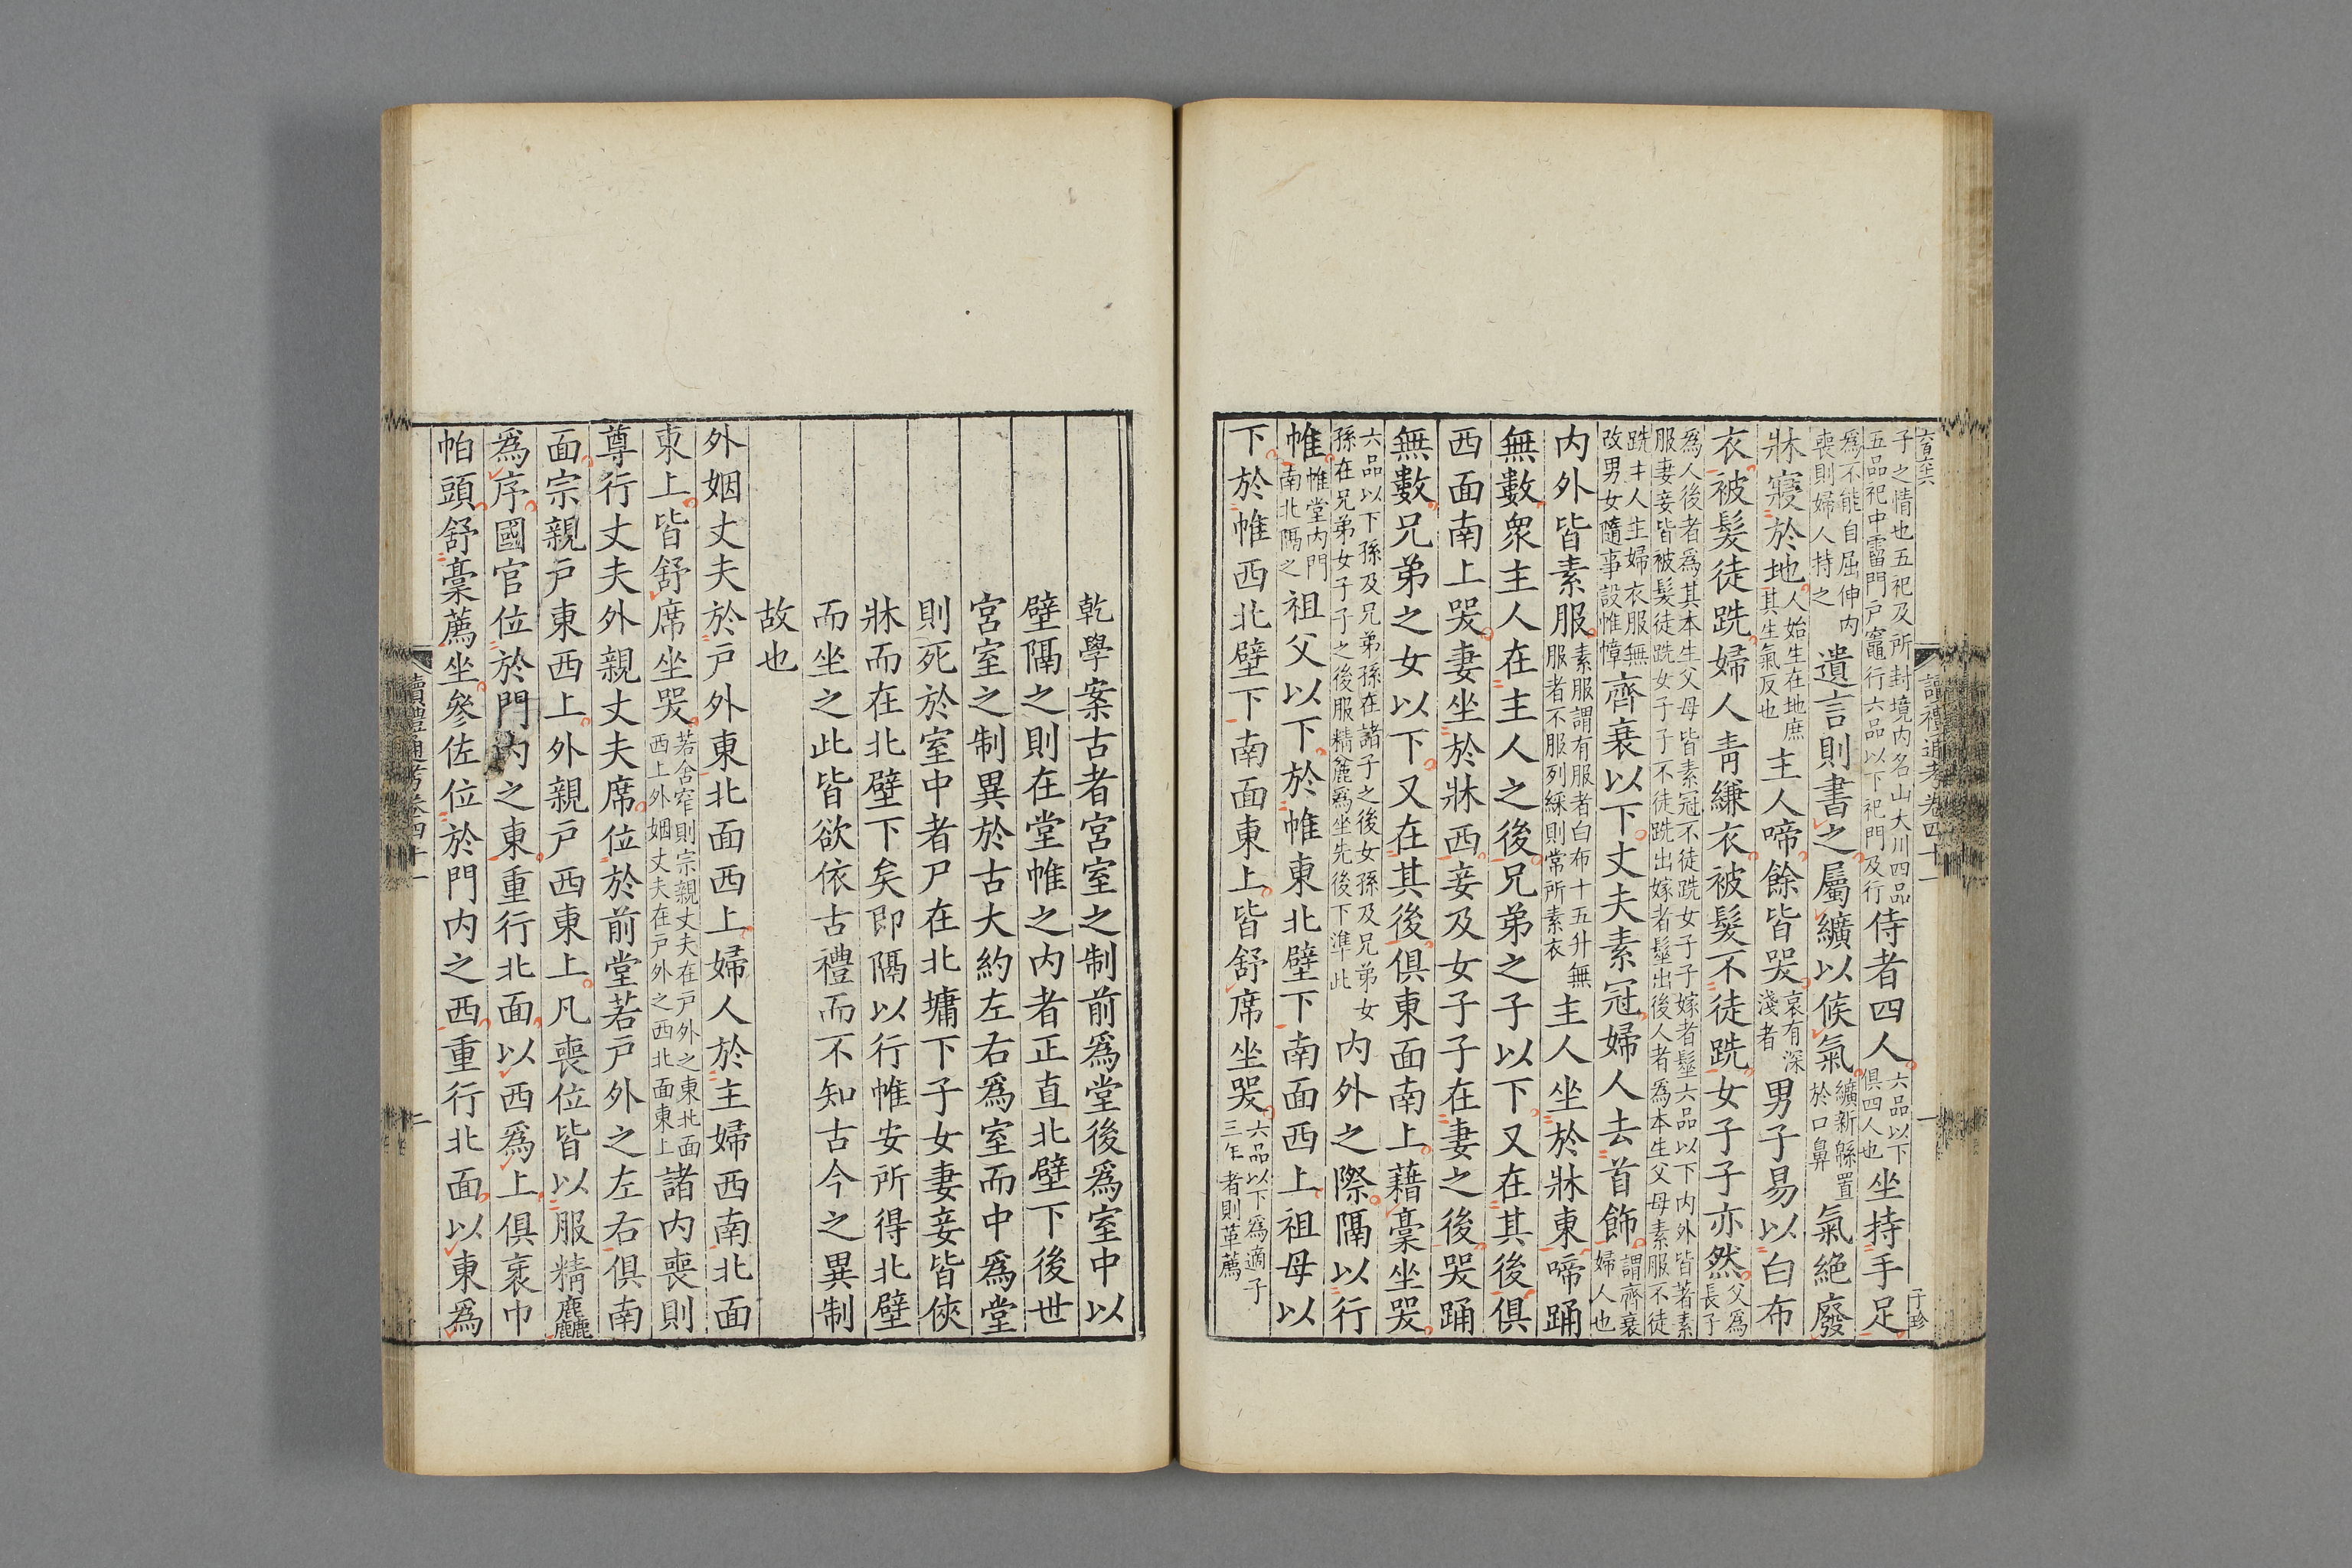 六百六十六
讀禮通考卷四十一
一
于珍
子之情也五祀及所封境内名山大川四品
五品祀中霤門戶竈行六品以下祀門及行
侍者四人
六品以下
俱四人也
坐持手足
爲不能自屈伸内
喪則婦人持之
遺言則書之屬纊以候氣
纊新緜置
於口鼻
氣絶廢
牀寢於地
人始生在地庶
其生氣反也
主人啼餘皆哭
哀有深
淺者
男子易以白布
衣被髮徒跣婦人青縑衣被髮不徒跣女子子亦然
父爲
長子
爲人後者爲其本生父母皆素冠不徒跣女子子嫁者髽六品以下内外皆著素
服妻妾皆被髮徒跣女子子不徒跣出嫁者髽出後人者爲本生父母素服不徒
跣主人主婦衣服無
改男女隨事設帷幛
齊衰以下丈夫素冠婦人去首飾
謂齊衰
婦人也
内外皆素服
素服謂有服者白布十五升無
服者不服列綵則常所素衣
主人坐於牀東啼踊
無數衆主人在主人之後兄弟之子以下又在其後俱
西面南上哭妻坐於牀西妾及女子子在妻之後哭踊
無數兄弟之女以下又在其後俱東面南上藉槀坐哭
六品以下孫及兄弟孫在諸子之後女孫及兄弟女
孫在兄弟女子子之後服精麄爲坐先後下準此
内外之際隔以行
帷
帷堂内門
南北隔之
祖父以下於帷東北壁下南面西上祖母以
下於帷西北壁下南面東上皆舒席坐哭
六品以下爲適子
三年者則草薦
乾學案古者宮室之制前爲堂後爲室中以
壁隔之則在堂帷之内者正直北壁下後世
宮室之制異於古大約左右爲室而中爲堂
則死於室中者尸在北墉下子女妻妾皆俠
牀而在北壁下矣即隔以行帷安所得北壁
而坐之此皆欲依古禮而不知古今之異制
故也
外姻丈夫於戶外東北面西上婦人於主婦西南北面
東上皆舒席坐哭
若舍窄則宗親丈夫在戶外之東北面
西上外姻丈夫在戶外之西北面東上
諸内喪則
尊行丈夫外親丈夫席位於前堂若戶外之左右俱南
面宗親戶東西上外親戶西東上凡喪位皆以服精麤
爲序國官位於門内之東重行北面以西爲上俱衰巾
帕頭舒槀薦坐參佐位於門内之西重行北面以東爲
讀禮通考卷四十一
二